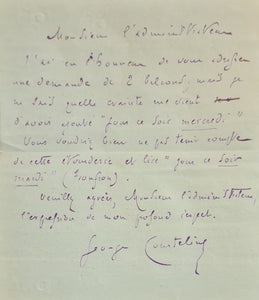 Monsieur l'administrateur
J'ai eu l'honneur de vous adresser
une demande de 2 balcons, mais je
ne sais quelle crainte me vient
d'avoir ajouté "pour ce soir mercredi"
Vous voudrez bien ne pas tenir compte
de cette étourderie et lire "pour ce soir
mardi"
Veuillez agréer, Monsieur l'administrateur,
l'expression de mon profond respect.
Georges Courteline